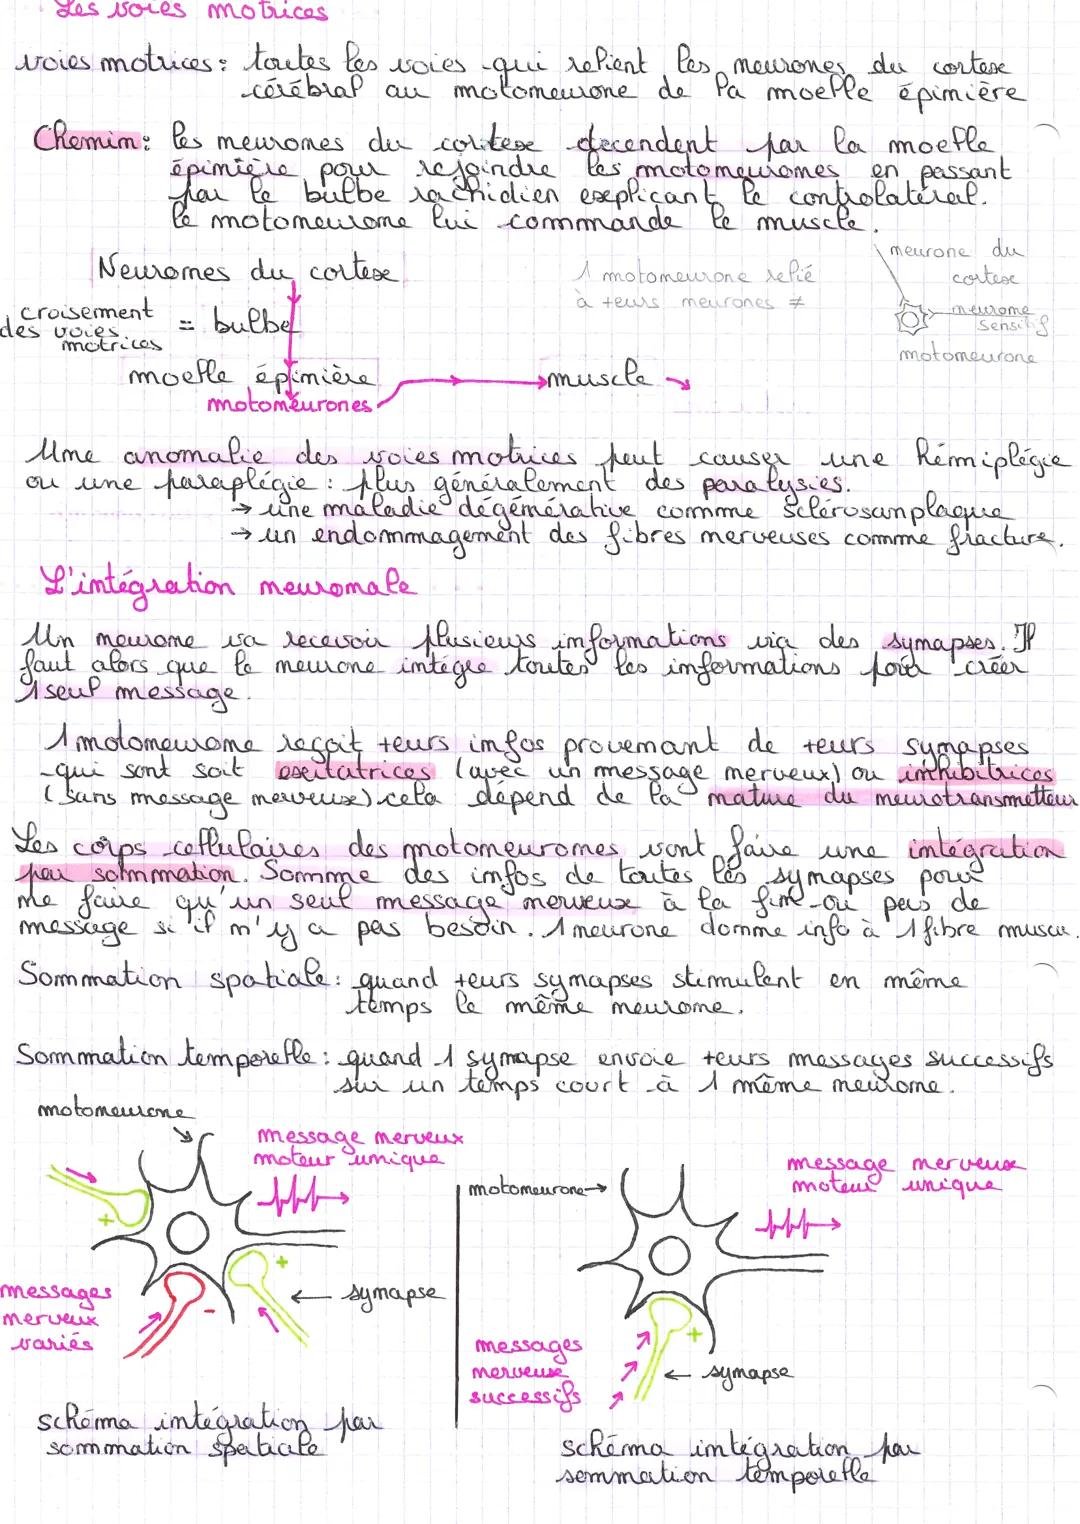 Les voies motrices
voies motrices : toutes les voies qui relient les neurones du cortex
cérébral au motoneurone de la moelle épinière
Chemin : les neurones du cortex decendent par la moelle
épinière pour rejoindre les motoneurones en passant
par le bulbe rachidien expliçant le controlatéral.
le motoneurone lui commande le muscle.
neurone du
cortex
neurone
sensitif
motoneurone
1 motoneurone relié
à +eurs neurones ≠
Neurones du cortex
croisement
des voies
motrices
= bulbe
moelle épinière
motoneurones
→ muscle →
Une anomalie des voies motrices peut causer une hémiplégie
ou une paraplégie : plus généralement des paralysies.
→ une maladie dégénérative comme sclérosanplaque
→ un endommagement des fibres nerveuses comme fracture.
L'intégration neuronale
Un neurone va recevoir plusieurs informations via des synapses. Il
faut alors que le neurone intégre toutes les informations pour créer
1 seul message.
1 motoneurone reçoit +eurs infos provenant de +eurs synapses
qui sont soit exitatrices (avec un message nerveux) ou inhibitrices
(sans message nerveux) cela dépend de la nature du neurotransmetteur
Les corps cellulaires des motoneurones vont faire une intégration
par sommation. Somme des infos de toutes les synapses pour
ne faire qu'un seul message nerveux à la fin ou pas de
message si il n'y a pas besoin. 1 neurone donne info à 1 fibre muscu.
Sommation spatiale : quand +eurs synapses stimulent en même
temps le même neurone.
Sommation temporelle : quand 1 synapse envoie +eurs messages successifs
sur un temps court à 1 même neurone.
motoneurone
message nerveux
moteur unique
+
+
-
← synapse
messages
nerveux
variés
schéma intégration par
sommation spatiale
motoneurone →
message nerveux
moteur unique
+
messages
nerveux
successifs
← synapse
schéma intégration par
sommation temporelle